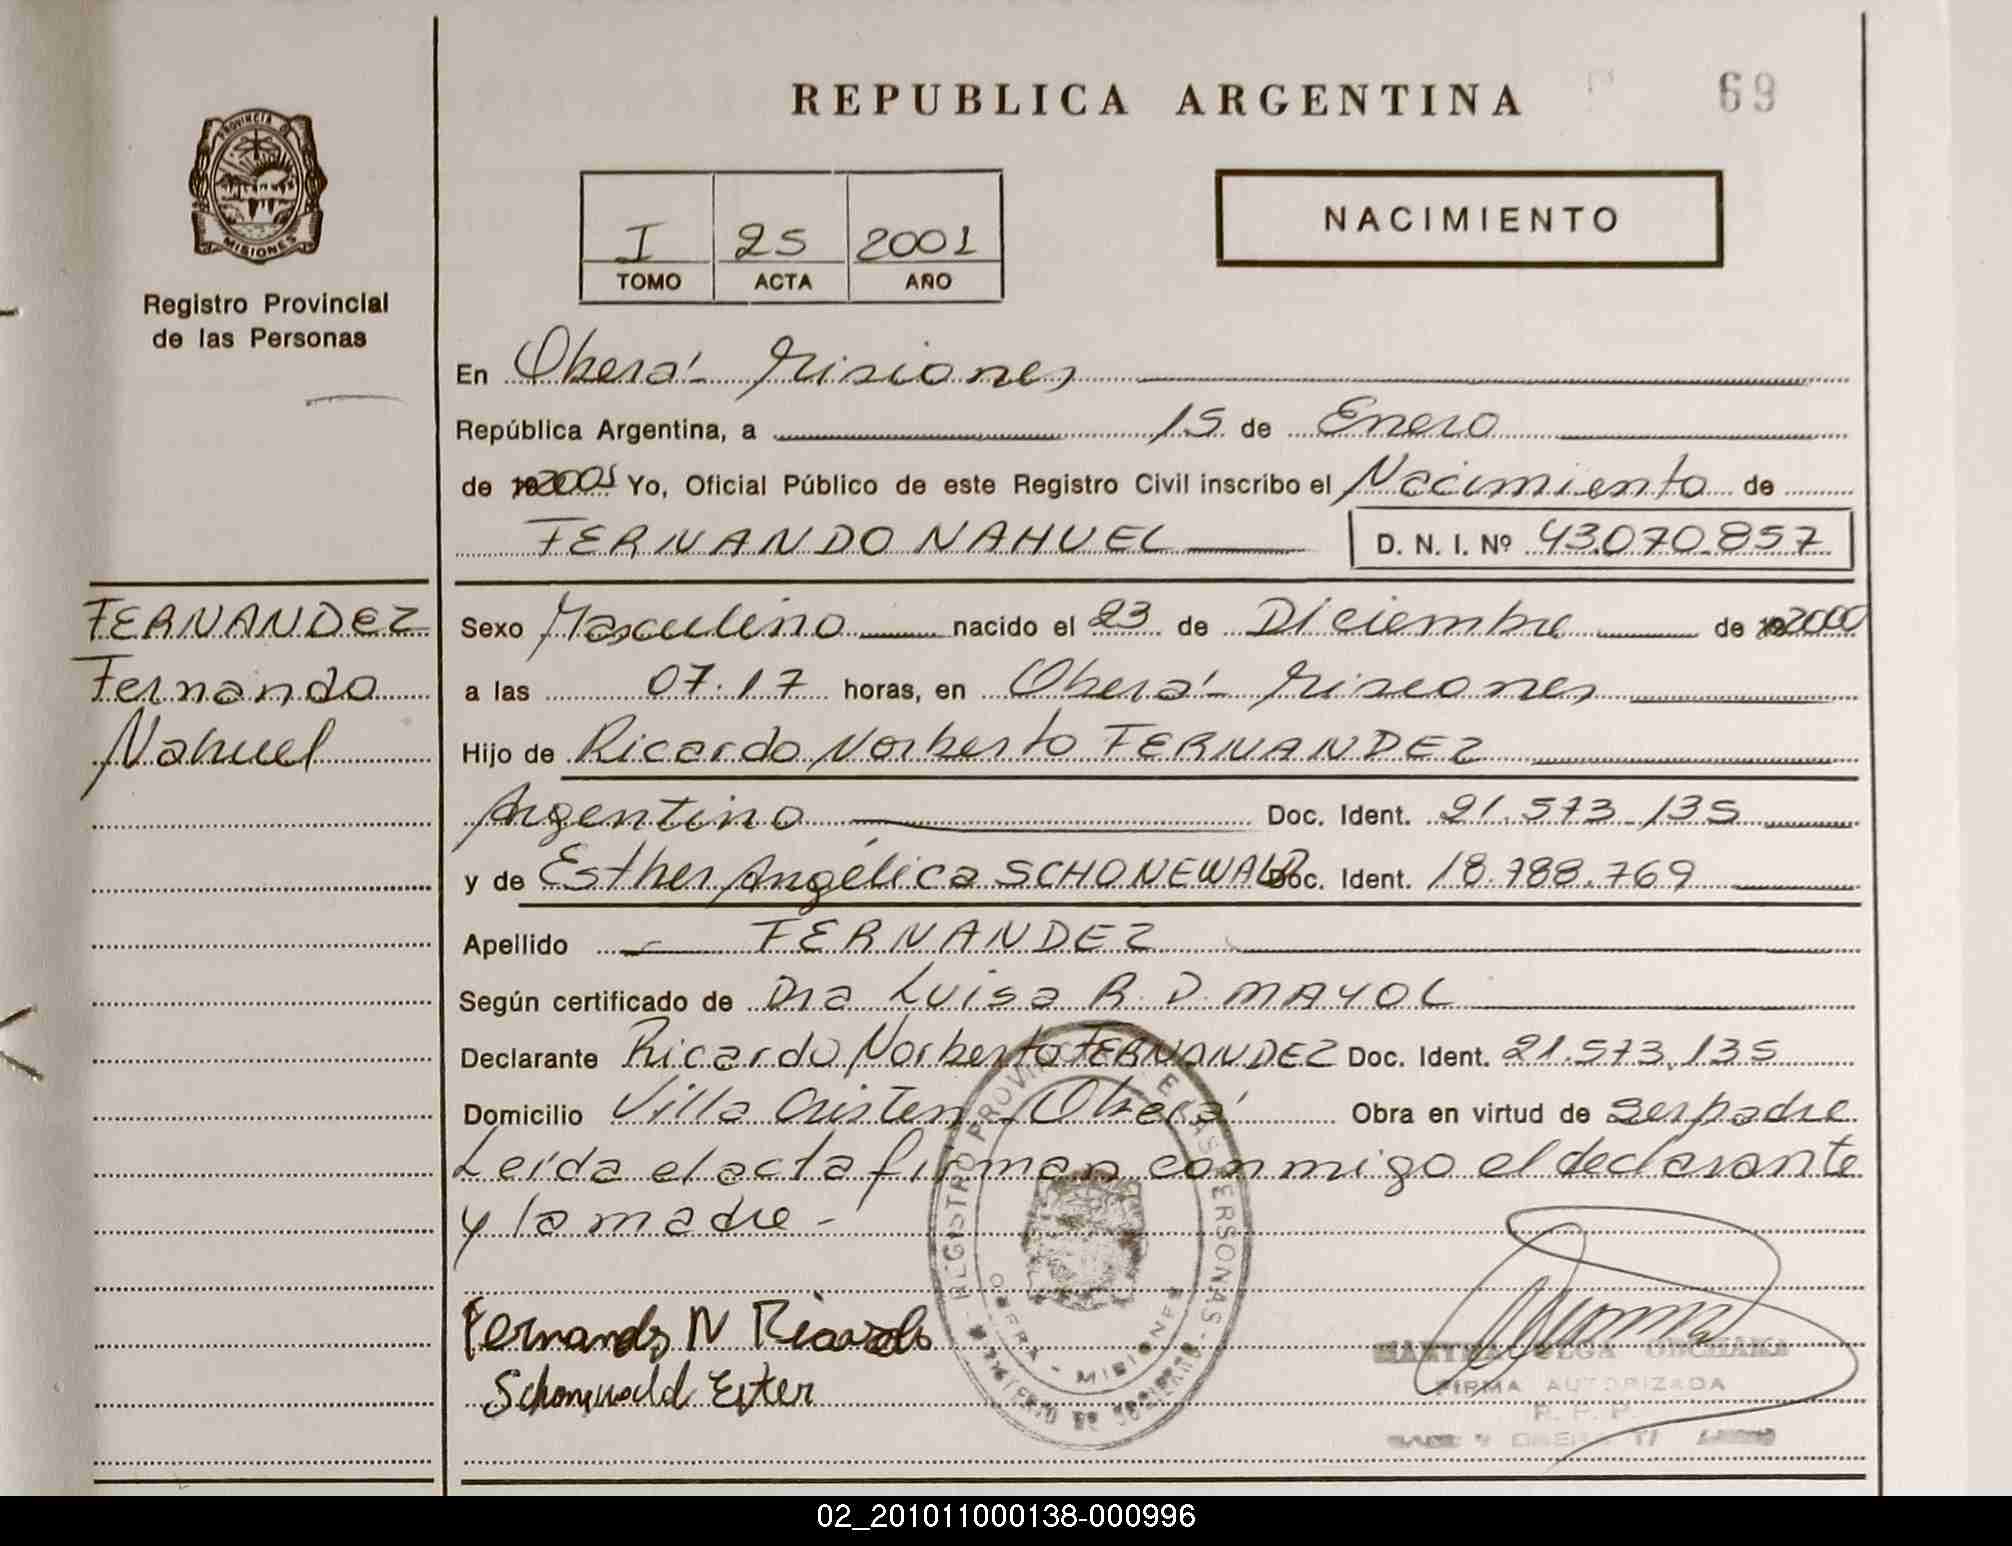 REPUBLICA ARGENTINA
69
PROVINCIA DE
MISIONES
Registro Provincial
de las Personas
I 25 2001
TOMO ACTA AÑO
NACIMIENTO
En Oberá - Misiones
República Argentina, a 15 de Enero
de 2001 Yo, Oficial Público de este Registro Civil inscribo el Nacimiento de
FERNANDO NAHUEL D. N. I. Nº 43.070.857
FERNANDEZ
Fernando
Nahuel
Sexo Masculino nacido el 23 de Diciembre de 2000
a las 07.17 horas, en Oberá - Misiones
Hijo de Ricardo Norberto FERNANDEZ
Argentino Doc. Ident. 21.573.135
y de Esther Angélica SCHONEWALD Doc. Ident. 18.788.769
Apellido FERNANDEZ
Según certificado de Dra Luisa R. D. MAYOL
Declarante Ricardo Norberto FERNANDEZ Doc. Ident. 21.573.135
Domicilio Villa Cristen - Oberá Obra en virtud de ser padre
Leída el acta firman conmigo el declarante
y la madre -
REGISTRO PROVINCIAL DE LAS PERSONAS
OBERA - MISIONES
MINISTERIO DE GOBIERNO
Fernandez N Ricardo
Schonewald Ester
FIRMA AUTORIZADA
R. P. P.
02_201011000138-000996